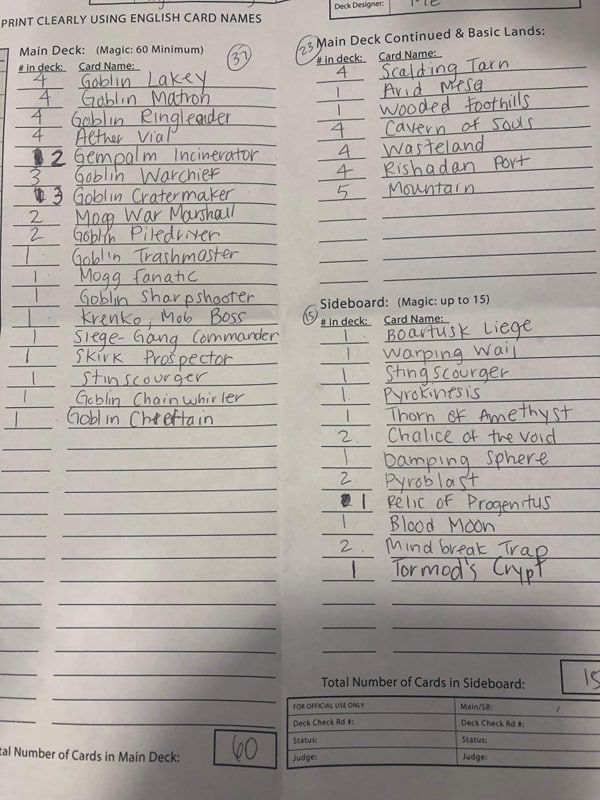 PRINT CLEARLY USING ENGLISH CARD NAMES
Deck Designer: Me
Main Deck: (Magic: 60 Minimum) 37
# in deck: Card Name:
4 Goblin Lakey
4 Goblin Matron
4 Goblin Ringleader
4 Aether Vial
2 Gempalm Incinerator
3 Goblin Warchief
3 Goblin Cratermaker
2 Mogg War Marshall
2 Goblin Piledriver
1 Goblin Trashmaster
1 Mogg fanatic
1 Goblin Sharpshooter
1 Krenko, Mob Boss
1 Siege-Gang Commander
1 Skirk Prospector
1 Stinscourger
1 Goblin Chainwhirler
1 Goblin Chieftain
tal Number of Cards in Main Deck: 60
23 Main Deck Continued & Basic Lands:
# in deck: Card Name:
4 Scalding Tarn
1 Arid Mesa
1 Wooded Foothills
4 Cavern of Souls
4 Wasteland
4 Rishadan Port
5 Mountain
15 Sideboard: (Magic: up to 15)
# in deck: Card Name:
1 Boartusk Liege
1 Warping Wail
1 Stingscourger
1 Pyrokinesis
1 Thorn of Amethyst
2 Chalice of the Void
1 Damping Sphere
2 Pyroblast
1 Relic of Progenitus
1 Blood Moon
2 Mindbreak Trap
1 Tormod's Crypt
Total Number of Cards in Sideboard: 15
FOR OFFICIAL USE ONLY Main/SB: /
Deck Check Rd #: Deck Check Rd #:
Status: Status:
Judge: Judge: